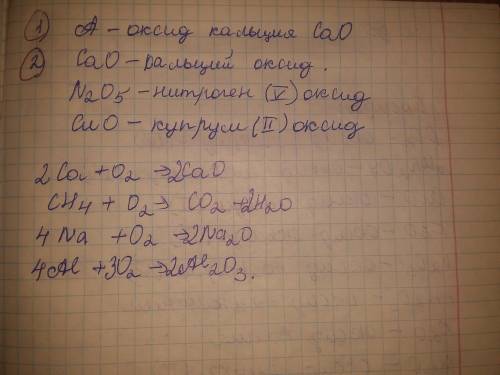 1) А – оксид кальция CaO
2) CaO – кальций оксид.
N2O5 – нитроген (V) оксид
CuO – купрум (II) оксид
2Ca + O2 → 2CaO
CH4 + O2 → CO2 + 2H2O
4Na + O2 → 2Na2O
4Al + 3O2 → 2Al2O3.